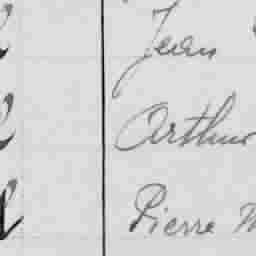 Jean
Arthur
Pierre